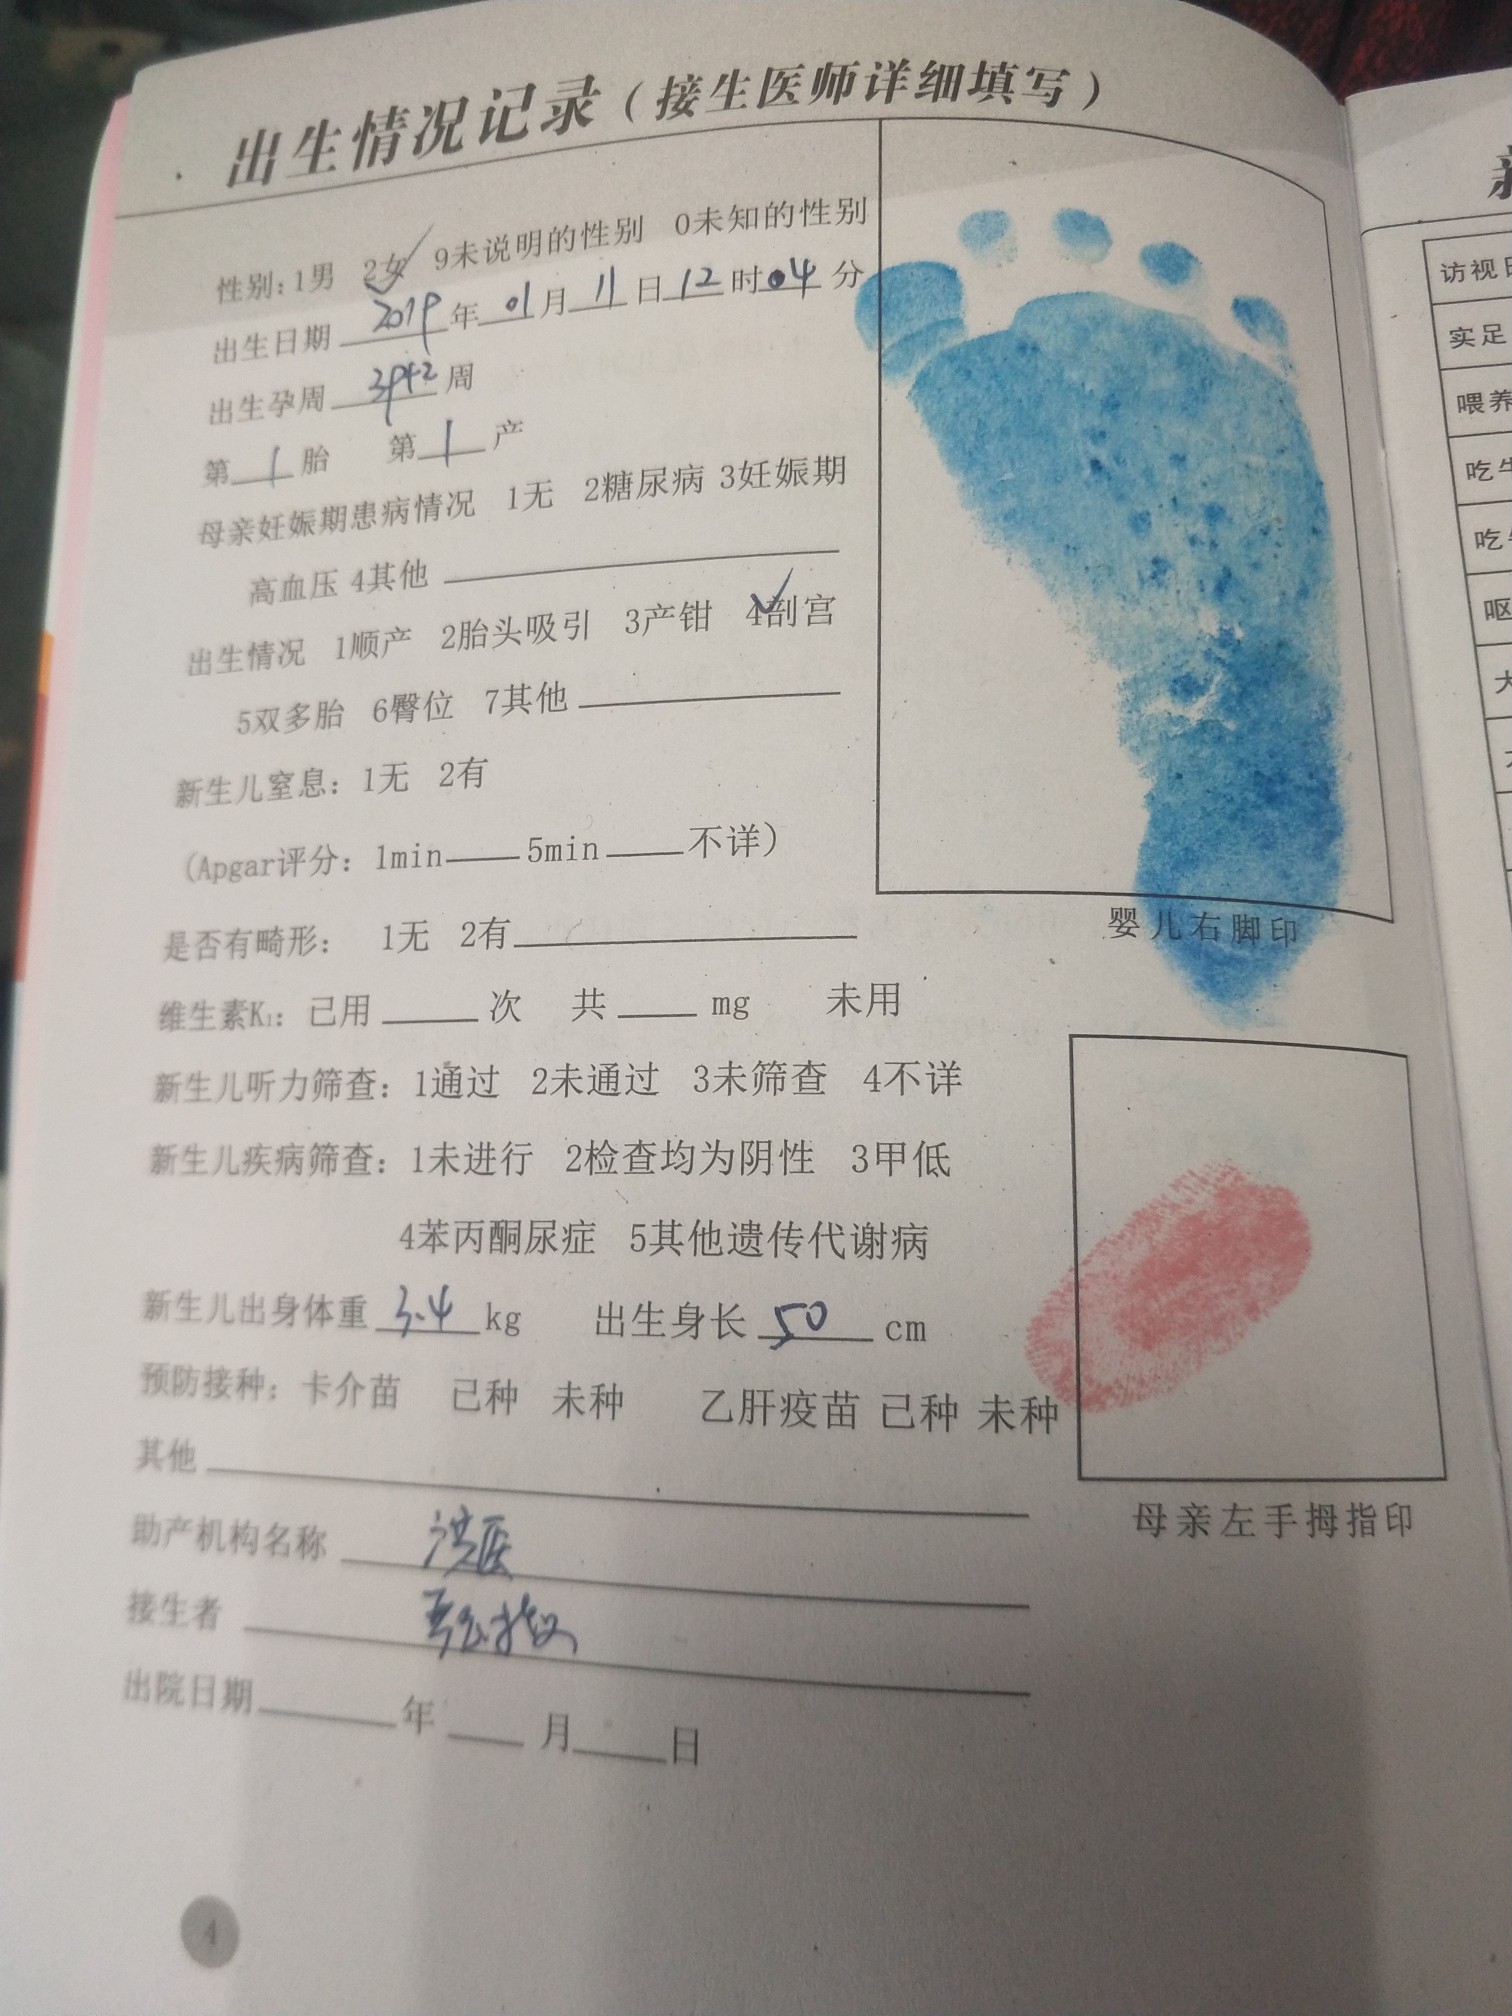 出生情况记录（接生医师详细填写）
性别：1男 2女 9未说明的性别 0未知的性别
出生日期 2019 年 01 月 11 日 12 时 04 分
出生孕周 39+2 周
第 1 胎 第 1 产
母亲妊娠期患病情况 1无 2糖尿病 3妊娠期
高血压 4其他
出生情况 1顺产 2胎头吸引 3产钳 4剖宫
5双多胎 6臀位 7其他
新生儿窒息：1无 2有
（Apgar评分：1min 5min 不详）
是否有畸形： 1无 2有
婴儿右脚印
维生素K1：已用 次 共 mg 未用
新生儿听力筛查：1通过 2未通过 3未筛查 4不详
新生儿疾病筛查：1未进行 2检查均为阴性 3甲低
4苯丙酮尿症 5其他遗传代谢病
新生儿出身体重 3.4 kg 出生身长 50 cm
预防接种：卡介苗 已种 未种 乙肝疫苗 已种 未种
其他
母亲左手拇指印
助产机构名称
接生者
出院日期 年 月 日
4
访视
实足
喂养
吃
吃
呕